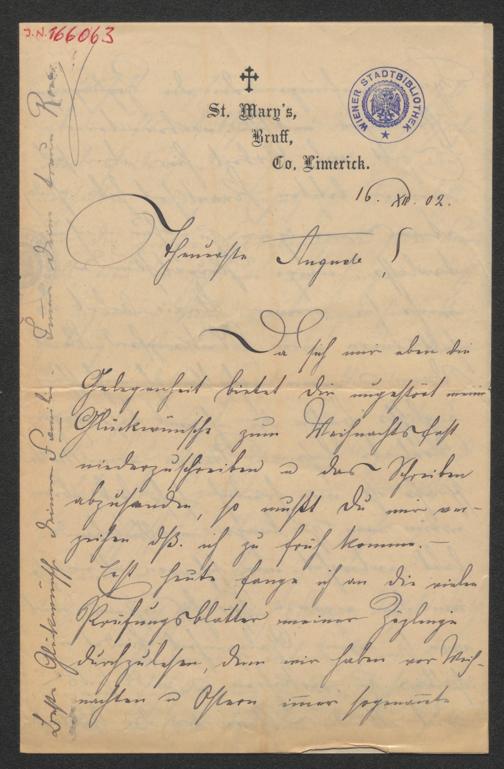 J.N. 166063
St. Mary's,
Bruff,
Co. Limerick.
WIENER STADTBIBLIOTHEK
16. XII. 02.
Theuerste Auguste!
Da sich mir eben die
Gelegenheit bietet Dir ungestört meine
Glückwünsche zum Weihnachtsfest
niederzuschreiben u das Schreiben
abzusenden, so mußt Du mir ver-
zeihen dß. ich zu früh komme.—
Erst heute fange ich an die vielen
Prüfungsblätter meiner Zöglinge
durchzulesen, denn wir haben vor Weih-
nachten u Ostern immer sogenannte
Beste Glückwünsche Deiner Familie. Deine